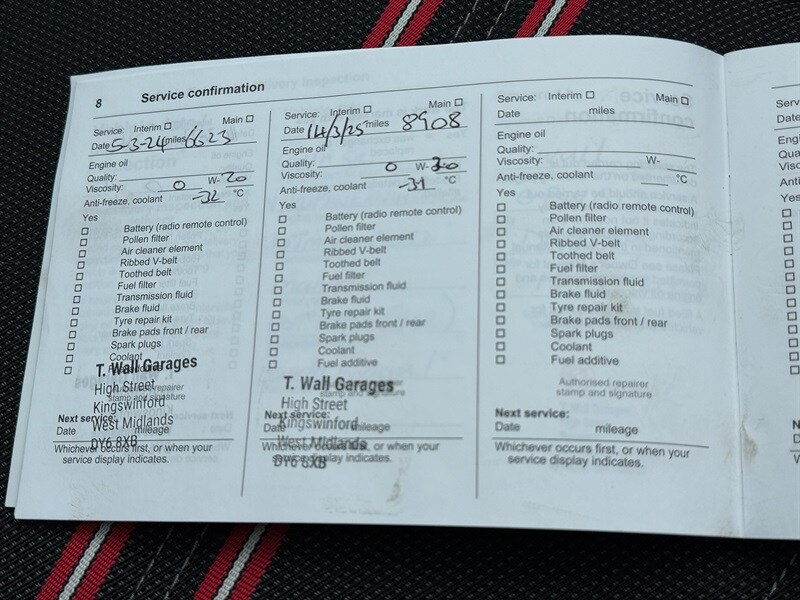 8 Service confirmation
Service: Interim ☐ Main ☐
Date 5-3-24 miles 6623
Engine oil
Quality:
Viscosity: 0 W- 20
Anti-freeze, coolant -32 °C
Yes
☐ Battery (radio remote control)
☐ Pollen filter
☐ Air cleaner element
☐ Ribbed V-belt
☐ Toothed belt
☐ Fuel filter
☐ Transmission fluid
☐ Brake fluid
☐ Tyre repair kit
☐ Brake pads front / rear
☐ Spark plugs
☐ Coolant
☐
T. Wall Garages
High Street
Kingswinford
West Midlands
DY6 8XB
Authorised repairer
stamp and signature
Next service:
Date mileage
Whichever occurs first, or when your
service display indicates.
Service: Interim ☐ Main ☐
Date 14/3/25 miles 8908
Engine oil
Quality:
Viscosity: 0 W- 20
Anti-freeze, coolant -31 °C
Yes
☐ Battery (radio remote control)
☐ Pollen filter
☐ Air cleaner element
☐ Ribbed V-belt
☐ Toothed belt
☐ Fuel filter
☐ Transmission fluid
☐ Brake fluid
☐ Tyre repair kit
☐ Brake pads front / rear
☐ Spark plugs
☐ Coolant
☐ Fuel additive
T. Wall Garages
High Street
Kingswinford
West Midlands
DY6 8XB
Authorised repairer
stamp and signature
Next service:
Date mileage
Whichever occurs first, or when your
service display indicates.
Service: Interim ☐ Main ☐
Date miles
Engine oil
Quality:
Viscosity: W-
Anti-freeze, coolant °C
Yes
☐ Battery (radio remote control)
☐ Pollen filter
☐ Air cleaner element
☐ Ribbed V-belt
☐ Toothed belt
☐ Fuel filter
☐ Transmission fluid
☐ Brake fluid
☐ Tyre repair kit
☐ Brake pads front / rear
☐ Spark plugs
☐ Coolant
☐ Fuel additive
Authorised repairer
stamp and signature
Next service:
Date mileage
Whichever occurs first, or when your
service display indicates.